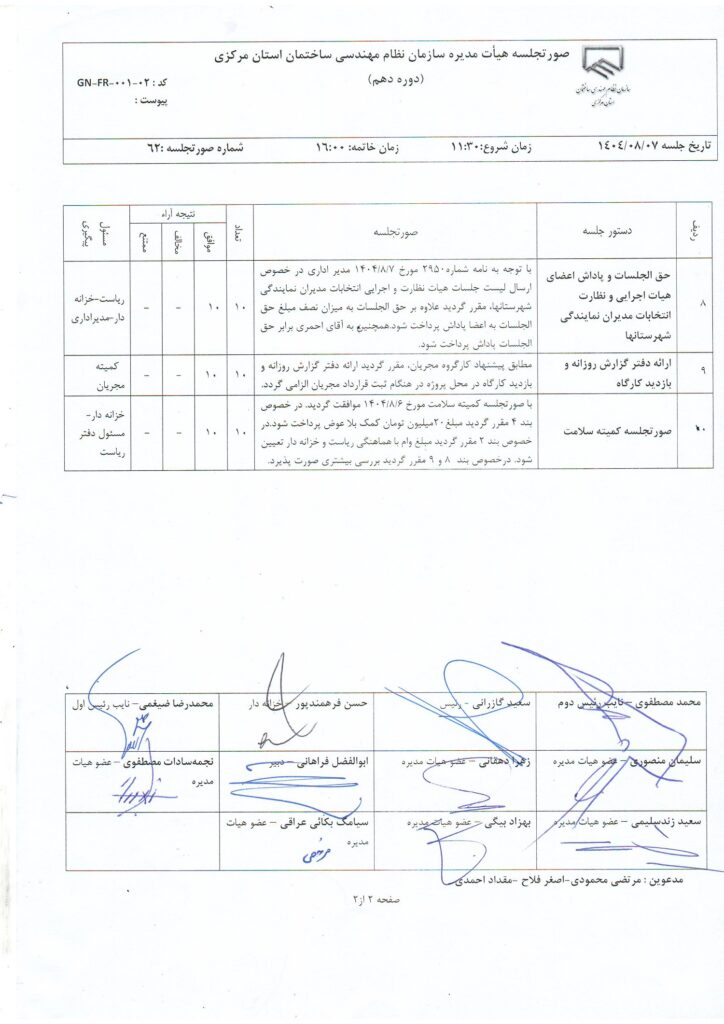 صورتجلسه هیأت مدیره سازمان نظام مهندسی ساختمان استان مرکزی
(دوره دهم)
کد : GN-FR-۰۰۱-۰۲
پیوست :
سازمان نظام مهندسی ساختمان
استان مرکزی
تاریخ جلسه ۱۴۰۴/۰۸/۰۷ زمان شروع:۱۱:۳۰ زمان خاتمه: ۱۶:۰۰ شماره صورتجلسه :۶۲
ردیف دستور جلسه صورتجلسه تعداد نتیجه آراء مسئول پیگیری
موافق مخالف ممتنع
۸
حق الجلسات و پاداش اعضای
هیات اجرایی و نظارت
انتخابات مدیران نمایندگی
شهرستانها
با توجه به نامه شماره۲۹۵۰ مورخ ۱۴۰۴/۸/۷ مدیر اداری در خصوص
ارسال لیست جلسات هیات نظارت و اجرایی انتخابات مدیران نمایندگی
شهرستانها، مقرر گردید علاوه بر حق الجلسات به میزان نصف مبلغ حق
الجلسات به اعضا پاداش پرداخت شود.همچنین به آقای احمری برابر حق
الجلسات پاداش پرداخت شود.
۱۰ ۱۰ – –
ریاست-خزانه
دار-مدیراداری
۹
ارائه دفتر گزارش روزانه و
بازدید کارگاه
مطابق پیشنهاد کارگروه مجریان، مقرر گردید ارائه دفتر گزارش روزانه و
بازدید کارگاه در محل پروژه در هنگام ثبت قرارداد مجریان الزامی گردد.
۱۰ ۱۰ – –
کمیته
مجریان
۱۰
صورتجلسه کمیته سلامت
با صورتجلسه کمیته سلامت مورخ ۱۴۰۴/۸/۶ موافقت گردید. در خصوص
بند ۴ مقرر گردید مبلغ۲۰میلیون تومان کمک بلا عوض پرداخت شود.در
خصوص بند ۲ مقرر گردید مبلغ وام با هماهنگی ریاست و خزانه دار تعیین
شود. درخصوص بند ۸ و ۹ مقرر گردید بررسی بیشتری صورت پذیرد.
۱۰ ۱۰ – –
خزانه دار-
مسئول دفتر
ریاست
محمد مصطفوی – نایب رئیس دوم
سعید گازرانی – رئیس
حسن فرهمندپور – خزانه دار
محمدرضا ضیغمی – نایب رئیس اول
سلیمان منصوری – عضو هیات مدیره
زهرا دهقانی – عضو هیات مدیره
ابوالفضل فراهانی – دبیر
نجمه‌سادات مصطفوی – عضو هیات
مدیره
سعید زندسلیمی – عضو هیات مدیره
بهزاد بیگی – عضو هیات مدیره
سیامک بکائی عراقی – عضو هیات
مدیره
مرخص
مدعوین : مرتضی محمودی-اصغر فلاح -مقداد احمدی
صفحه ۲ از۲